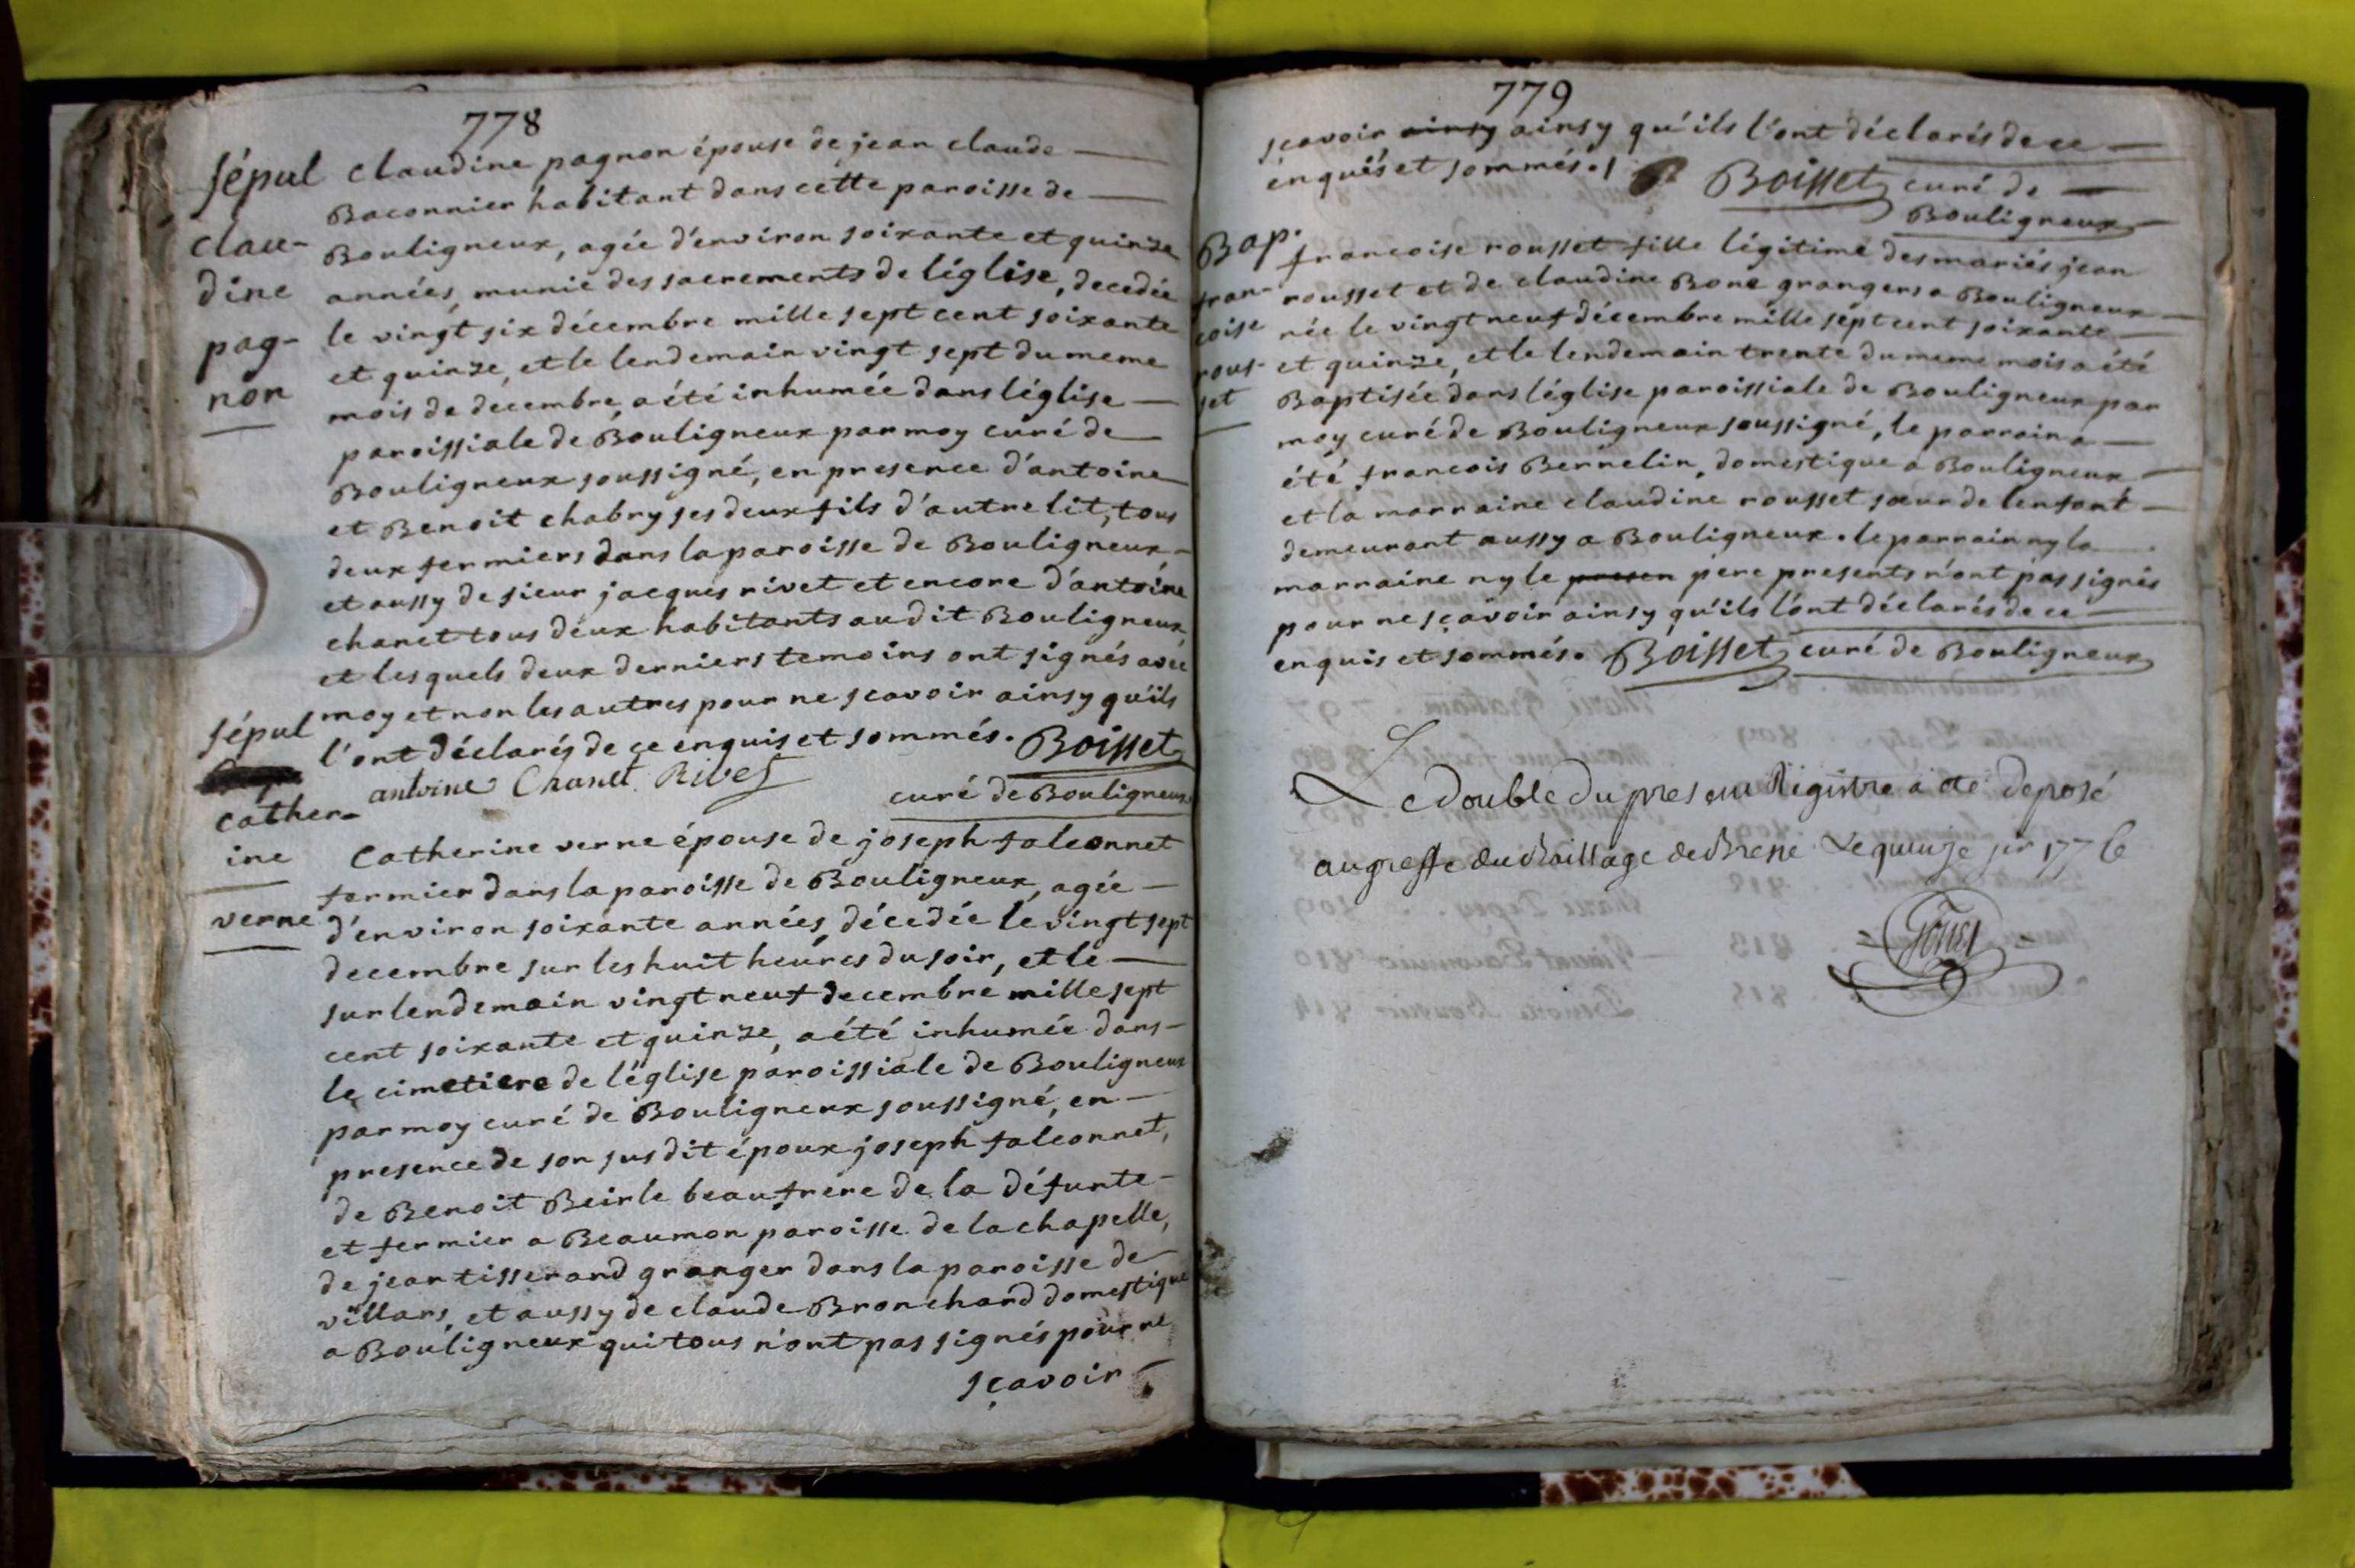 778
sépul
clau-
dine
pag-
non
claudine pagnon épouse de jean claude
Baconnier habitant dans cette paroisse de
Bouligneux, agée d'environ soixante et quinze
années, munie des sacrements de léglise, decedée
le vingt six décembre mille sept cent soixante
et quinze, et le lendemain vingt sept du meme
mois de decembre, a été inhumée dans léglise
paroissiale de Bouligneux par moy curé de
Bouligneux soussigné, en presence d'antoine
et Benoit chabry ses deux fils d'autre lit, tous
deux fermiers dans la paroisse de Bouligneux
et aussy de sieur jacques rivet et encore d'antoine
chanet tous deux habitants audit Bouligneux
et lesquels deux derniers temoins ont signés avec
moy et non les autres pour ne scavoir ainsy qu'ils
l'ont déclarés de ce enquis et sommés. Boisset
antoine Chanet Rivet
curé de Bouligneux
sépul
cather-
ine
verne
Catherine verne épouse de joseph falconnet
fermier dans la paroisse de Bouligneux, agée
d'environ soixante années, décedée le vingt sept
decembre sur les huit heures du soir, et le
surlendemain vingt neuf decembre mille sept
cent soixante et quinze, a été inhumée dans
le cimetiere de léglise paroissiale de Bouligneux
par moy curé de Bouligneux soussigné, en
presence de son susdit époux joseph falconnet,
de Benoit Beirle beaufrere de la défunte
et fermier a Beaumon paroisse de la chapelle,
de jean tisserand granger dans la paroisse de
villars, et aussy de claude Bronchard domestique
a Bouligneux qui tous n'ont pas signés pour ne
sçavoir
779
scavoir ainsy ainsy qu'ils l'ont déclarés de ce
enquis et sommés. Boisset curé de
Bouligneux
Bap.
fran-
coise
rous-
set
francoise rousset fille légitime des mariés jean
rousset et de claudine Bone grangers a Bouligneux
née le vingt neuf décembre mille sept cent soixante
et quinze, et le lendemain trente du meme mois a été
Baptisée dans léglise paroissiale de Bouligneux par
moy curé de Bouligneux soussigné, le parrain a
été francois Bernelin, domestique a Bouligneux
et la marraine claudine rousset sœur de lenfant
demeurant aussy a Bouligneux. le parrain ny la
marraine ny le presen pere presents n'ont pas signés
pour ne sçavoir ainsy qu'ils l'ont déclarés de ce
enquis et sommés. Boisset curé de Bouligneux
Le double du present Registre a été deposé
au greffe du Bailliage de Bresse Le quinze jer 1776